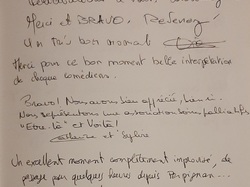 Merci et BRAVO. Revenez!
Un très bon moment
Merci pour ce bon moment belle interprétation
de chaque comédiens.
Bravo! Nous avons bien apprécié,
Nous représentons une association
"Etre là" et Voilà!
et
Un excellent moment complètement improvisé, de
passage pour quelques heures depuis Perpignan...